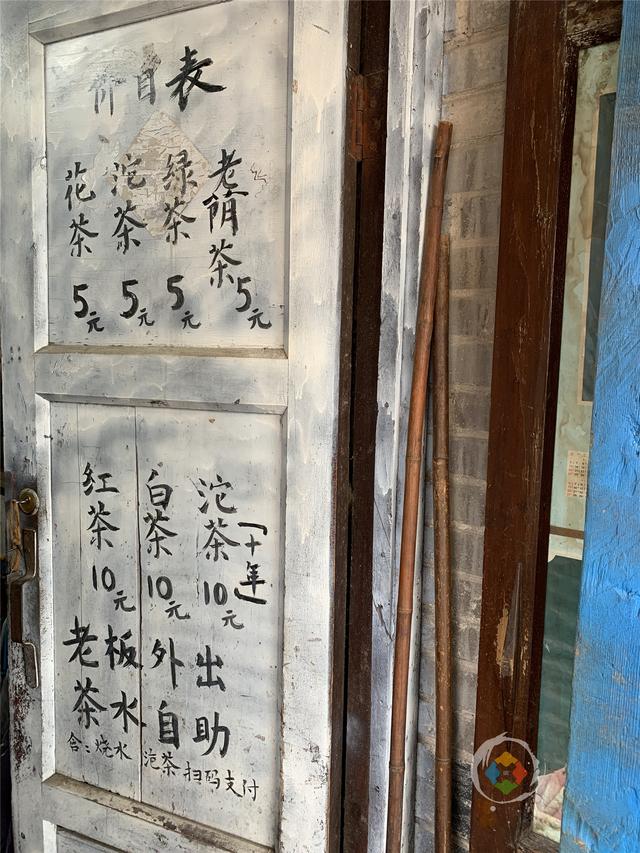 价目表
花茶 5元
沱茶 5元
绿茶 5元
老荫茶 5元
红茶 10元
白茶 10元
沱茶「十年」 10元
老板外出
茶水自助
含：烧水 泡茶 扫码支付